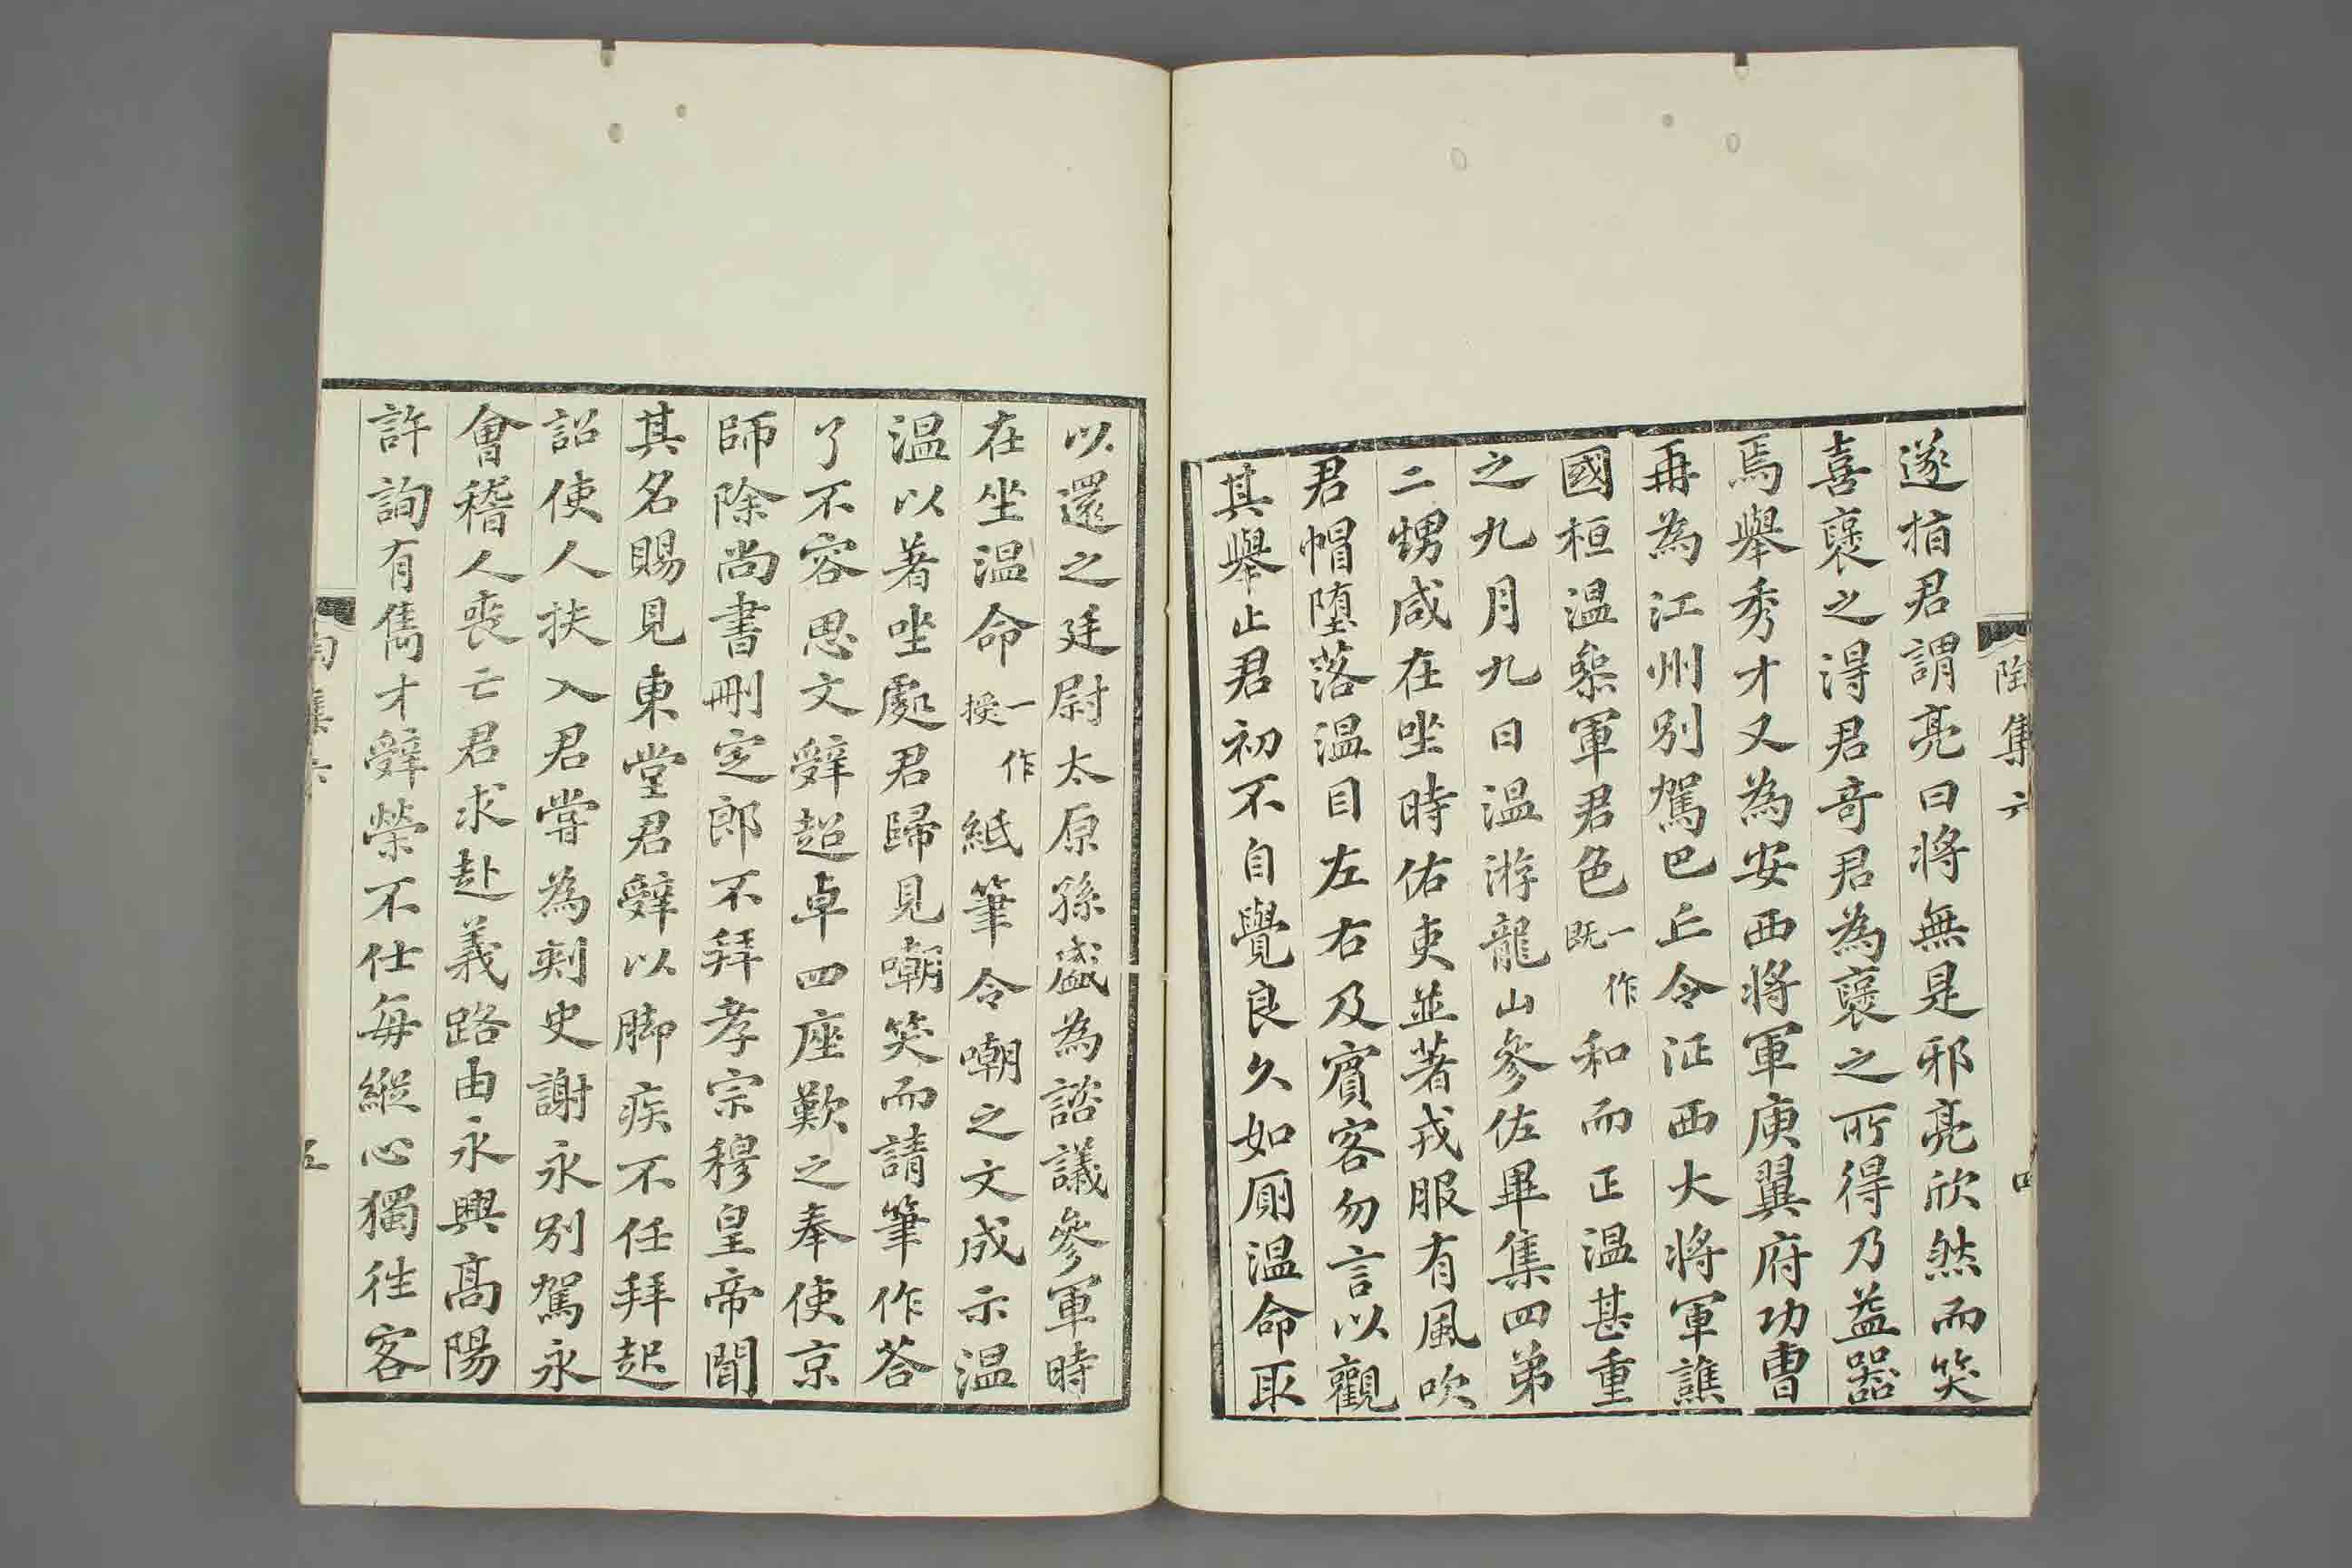 陶集六
四
遂指君謂亮曰將無是邪亮欣然而笑
喜裒之得君奇君為裒之所得乃益器
焉舉秀才又為安西將軍庾翼府功曹
再為江州別駕巴丘令征西大將軍譙
國桓温叅軍君色一作既和而正温甚重
之九月九日温游龍山參佐畢集四弟
二甥咸在坐時佐吏並著戎服有風吹
君帽墮落温目左右及賓客勿言以觀
其舉止君初不自覺良久如厠温命取
以還之廷尉太原孫盛為諮議參軍時
在坐温命一作授紙筆令嘲之文成示温
温以著坐處君歸見嘲笑而請筆作荅
了不容思文辭超卓四座歎之奉使京
師除尚書刪定郎不拜孝宗穆皇帝聞
其名賜見東堂君辭以脚疾不任拜起
詔使人扶入君嘗為刺史謝永別駕永
會稽人喪亡君求赴義路由永興高陽
許詢有雋才辭榮不仕每縱心獨往客
陶集六
五